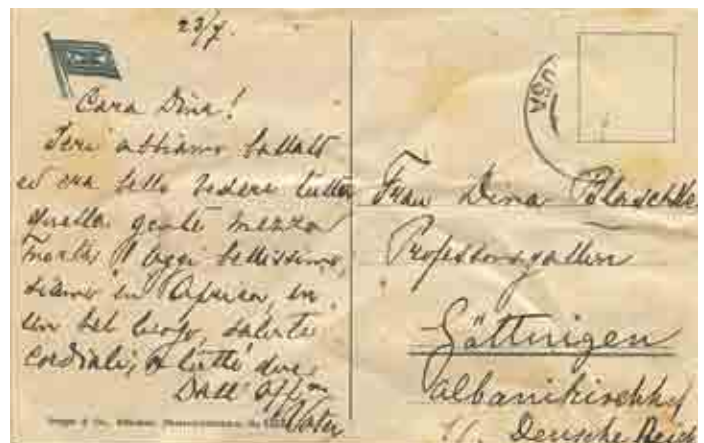 23/7.
Cara Dina!
Ieri abbiamo ballato
ed era bello vedere tutta
quella gente mezza
morta! Oggi bellissimo,
siamo in Africa, in
un bel luogo, saluti
cordiali, a tutti due
Dall' aff
Vater
USA
Frau Dina Blaschke
Professorsgattin
Göttingen
Albanikirchhof
Deutsche Reich